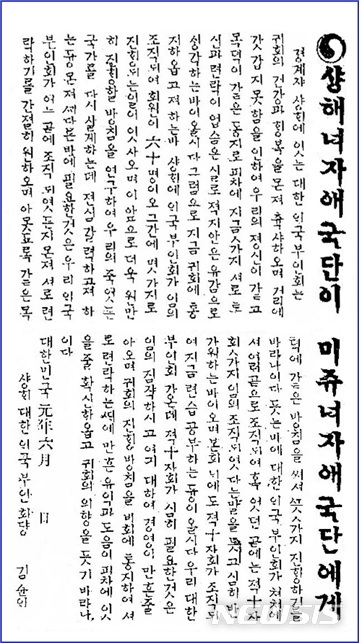 샹해녀자애국단이
미쥬녀자애국단에게
경계쟈 샹해에 잇는 대한인국부인회는
귀회의 건강과 힝복을 몬져 츅샤하오며 거리에
갓갑지 못함을 인하여 우리의 졍신이 갓흐고
목뎍이 갓흔 동지로 피차에 지금ᄭᅡ지 셔로 통
신과 련락이 업슴은 실로 젹지안은 유감으로
싱각하는바이올시다 그럼으로 지금 귀회에 통
지하옵고져 하는바 샹해인국부인회가 임의
조직되여 회원이 六十명이오 그간에 몃가지로
진힝되는일이 잇사오며 이압으로 더욱 원만
히 진힝할 방침을 연구하여 우리의 죽엇든
국가를 다시 살게하는데 젼심갈력하고져 하
는 몬져 바에 필요한것은 우리인국
부인회가 어느곳에 조직되엿든지 몬져 셔로 련
락하기를 간절히 원하오며 아못됴록 갓흔 목
뎍에 갓흔 방침을 써셔 ᄭᅳᆺᄭᅡ지 진힝하기를
바라나이다 듯는바에 대한인국부인회가 쳐처에
셔 여러곳으로 조직되여 혹엇던 곳에는 젹十자
회ᄭᅡ지 임의 조직되엿다는 말을 듯고 심히 반
가워하는바이오며 본회 니에도 젹十자회가 조직되
여 지금 련습공부하는 즁이올시다 우리 대한
부인회 가온데 젹十자회가 심히 필요한것은
임의 짐작하시고 여긔 대하여 경영이 만흔줄
아오며 귀회의 진힝방침을 비회에 통지하여 셔
로 련락하는 만흔 유익과 도음이 피차에 잇
을줄 확신하옵고 귀회의 의향을 듯기 바라나
이다
대한민국 元年六月 日
샹해 대한인국부인회쟝 김슌인
NEWSIS